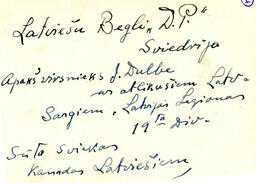 Latviešu Begli „D.P."
Sviedrija
Apakšvirsnieks J. Dulbe
ar atlikušiem Latv-
Sargiem „Latvijas Legionas
19ta Div-
Sūta sveikas
Kanadas Latviešiem,